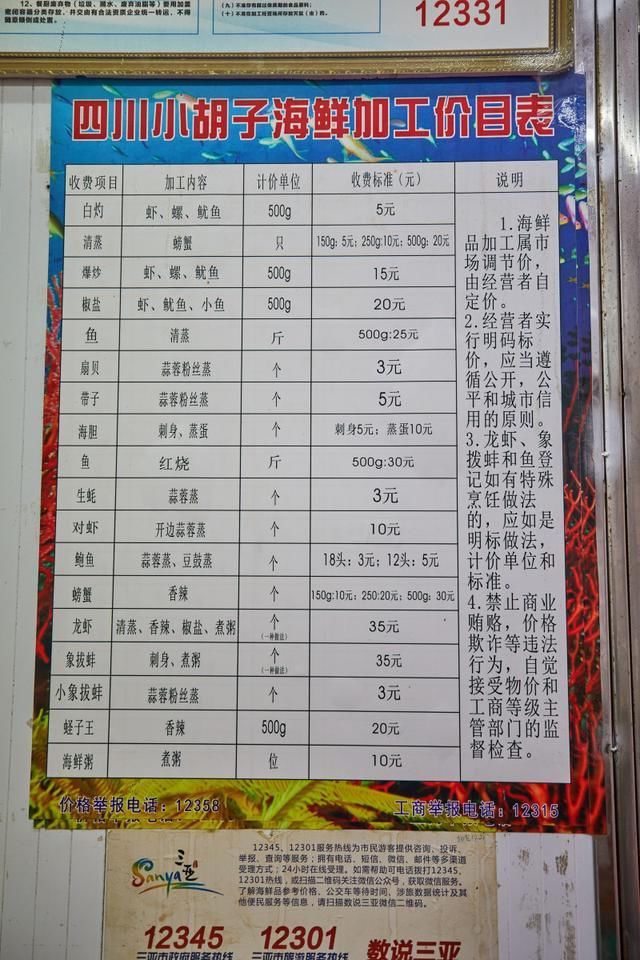 12、餐厨废弃物（垃圾、潲水、废弃油脂等）要用加盖
密闭容器分类存放，并交由有合法资质企业统一转运，不得
随意倾倒或处置。
12331
四川小胡子海鲜加工价目表
收费项目 加工内容 计价单位 收费标准（元） 说明
白灼 虾、螺、鱿鱼 500g 5元
清蒸 螃蟹 只 150g: 5元; 250g:10元; 500g: 20元
爆炒 虾、螺、鱿鱼 500g 15元
椒盐 虾、鱿鱼、小鱼 500g 20元
鱼 清蒸 斤 500g:25元
扇贝 蒜蓉粉丝蒸 个 3元
带子 蒜蓉粉丝蒸 个 5元
海胆 刺身、蒸蛋 个 刺身5元; 蒸蛋10元
鱼 红烧 斤 500g:30元
生蚝 蒜蓉蒸 个 3元
对虾 开边蒜蓉蒸 个 10元
鲍鱼 蒜蓉蒸、豆鼓蒸 个 18头: 3元; 12头: 5元
螃蟹 香辣 个 150g:10元; 250:20元; 500g: 30元
龙虾 清蒸、香辣、椒盐、煮粥 个 35元
(一种做法)
象拔蚌 刺身、煮粥 个 35元
(一种做法)
小象拔蚌 蒜蓉粉丝蒸 个 3元
蛏子王 香辣 500g 20元
海鲜粥 煮粥 位 10元
1.海鲜
品加工属市
场调节价，
由经营者自
定价。
2.经营者实
行明码标
价，应当遵
循公开，公
平和城市信
用的原则。
3.龙虾、象
拨蚌和鱼登
记如有特殊
烹饪做法
的，应如是
明标做法，
计价单位和
标准。
4.禁止商业
贿赂，价格
欺诈等违法
行为，自觉
接受物价和
工商等级主
管部门的监
督检查。
价格举报电话：12358 工商举报电话：12315
三亚
Sanya
12345、12301服务热线为市民游客提供咨询、投诉、
举报、查询等服务；拥有电话、短信、微信、邮件等多渠道
受理方式；24小时在线受理。如需帮助可电话拨打12345、
12301热线，或扫描二维码关注微信公众号，获取微信服务。
了解海鲜品参考价格、公交车等待时间、涉旅数据统计及其
他便民服务等信息，请扫描数说三亚微信二维码。
12345 12301 数说三亚
三亚市政府服务热线 三亚市旅游服务热线